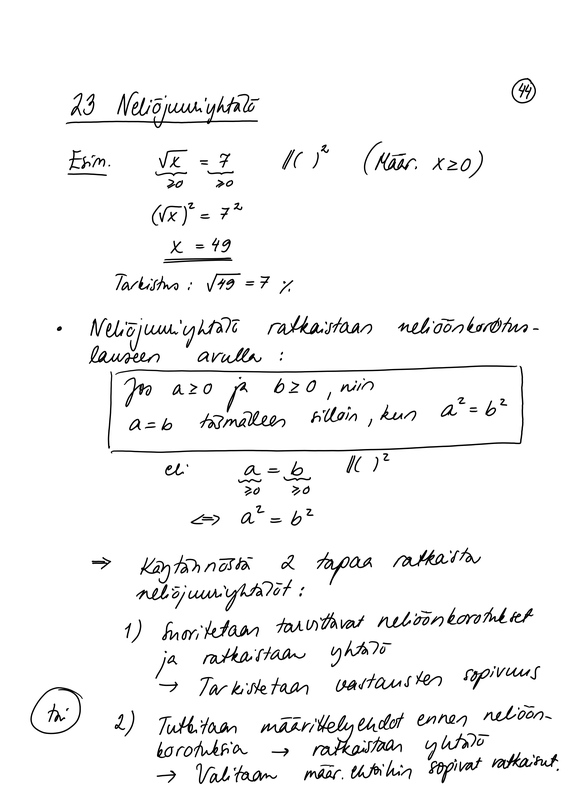 44
23 Neliöjuuriyhtälö
Esim. √x = 7 ||( )² (Määr. x ≥ 0)
≥0 ≥0
(√x)² = 7²
x = 49
Tarkistus : √49 = 7 ✓.
• Neliöjuuriyhtälö ratkaistaan neliöönkorotus-
lauseen avulla :
Jos a ≥ 0 ja b ≥ 0, niin
a = b täsmälleen silloin, kun a² = b²
eli a = b ||( )²
≥0 ≥0
⇔ a² = b²
⇒ Käytännössä 2 tapaa ratkaista
neliöjuuriyhtälöt :
1) Suoritetaan tarvittavat neliöönkorotukset
ja ratkaistaan yhtälö
→ Tarkistetaan vastausten sopivuus
tai 2) Tutkitaan määrittelyehdot ennen neliöön-
korotuksia → ratkaistaan yhtälö
→ Valitaan määr.ehtoihin sopivat ratkaisut.